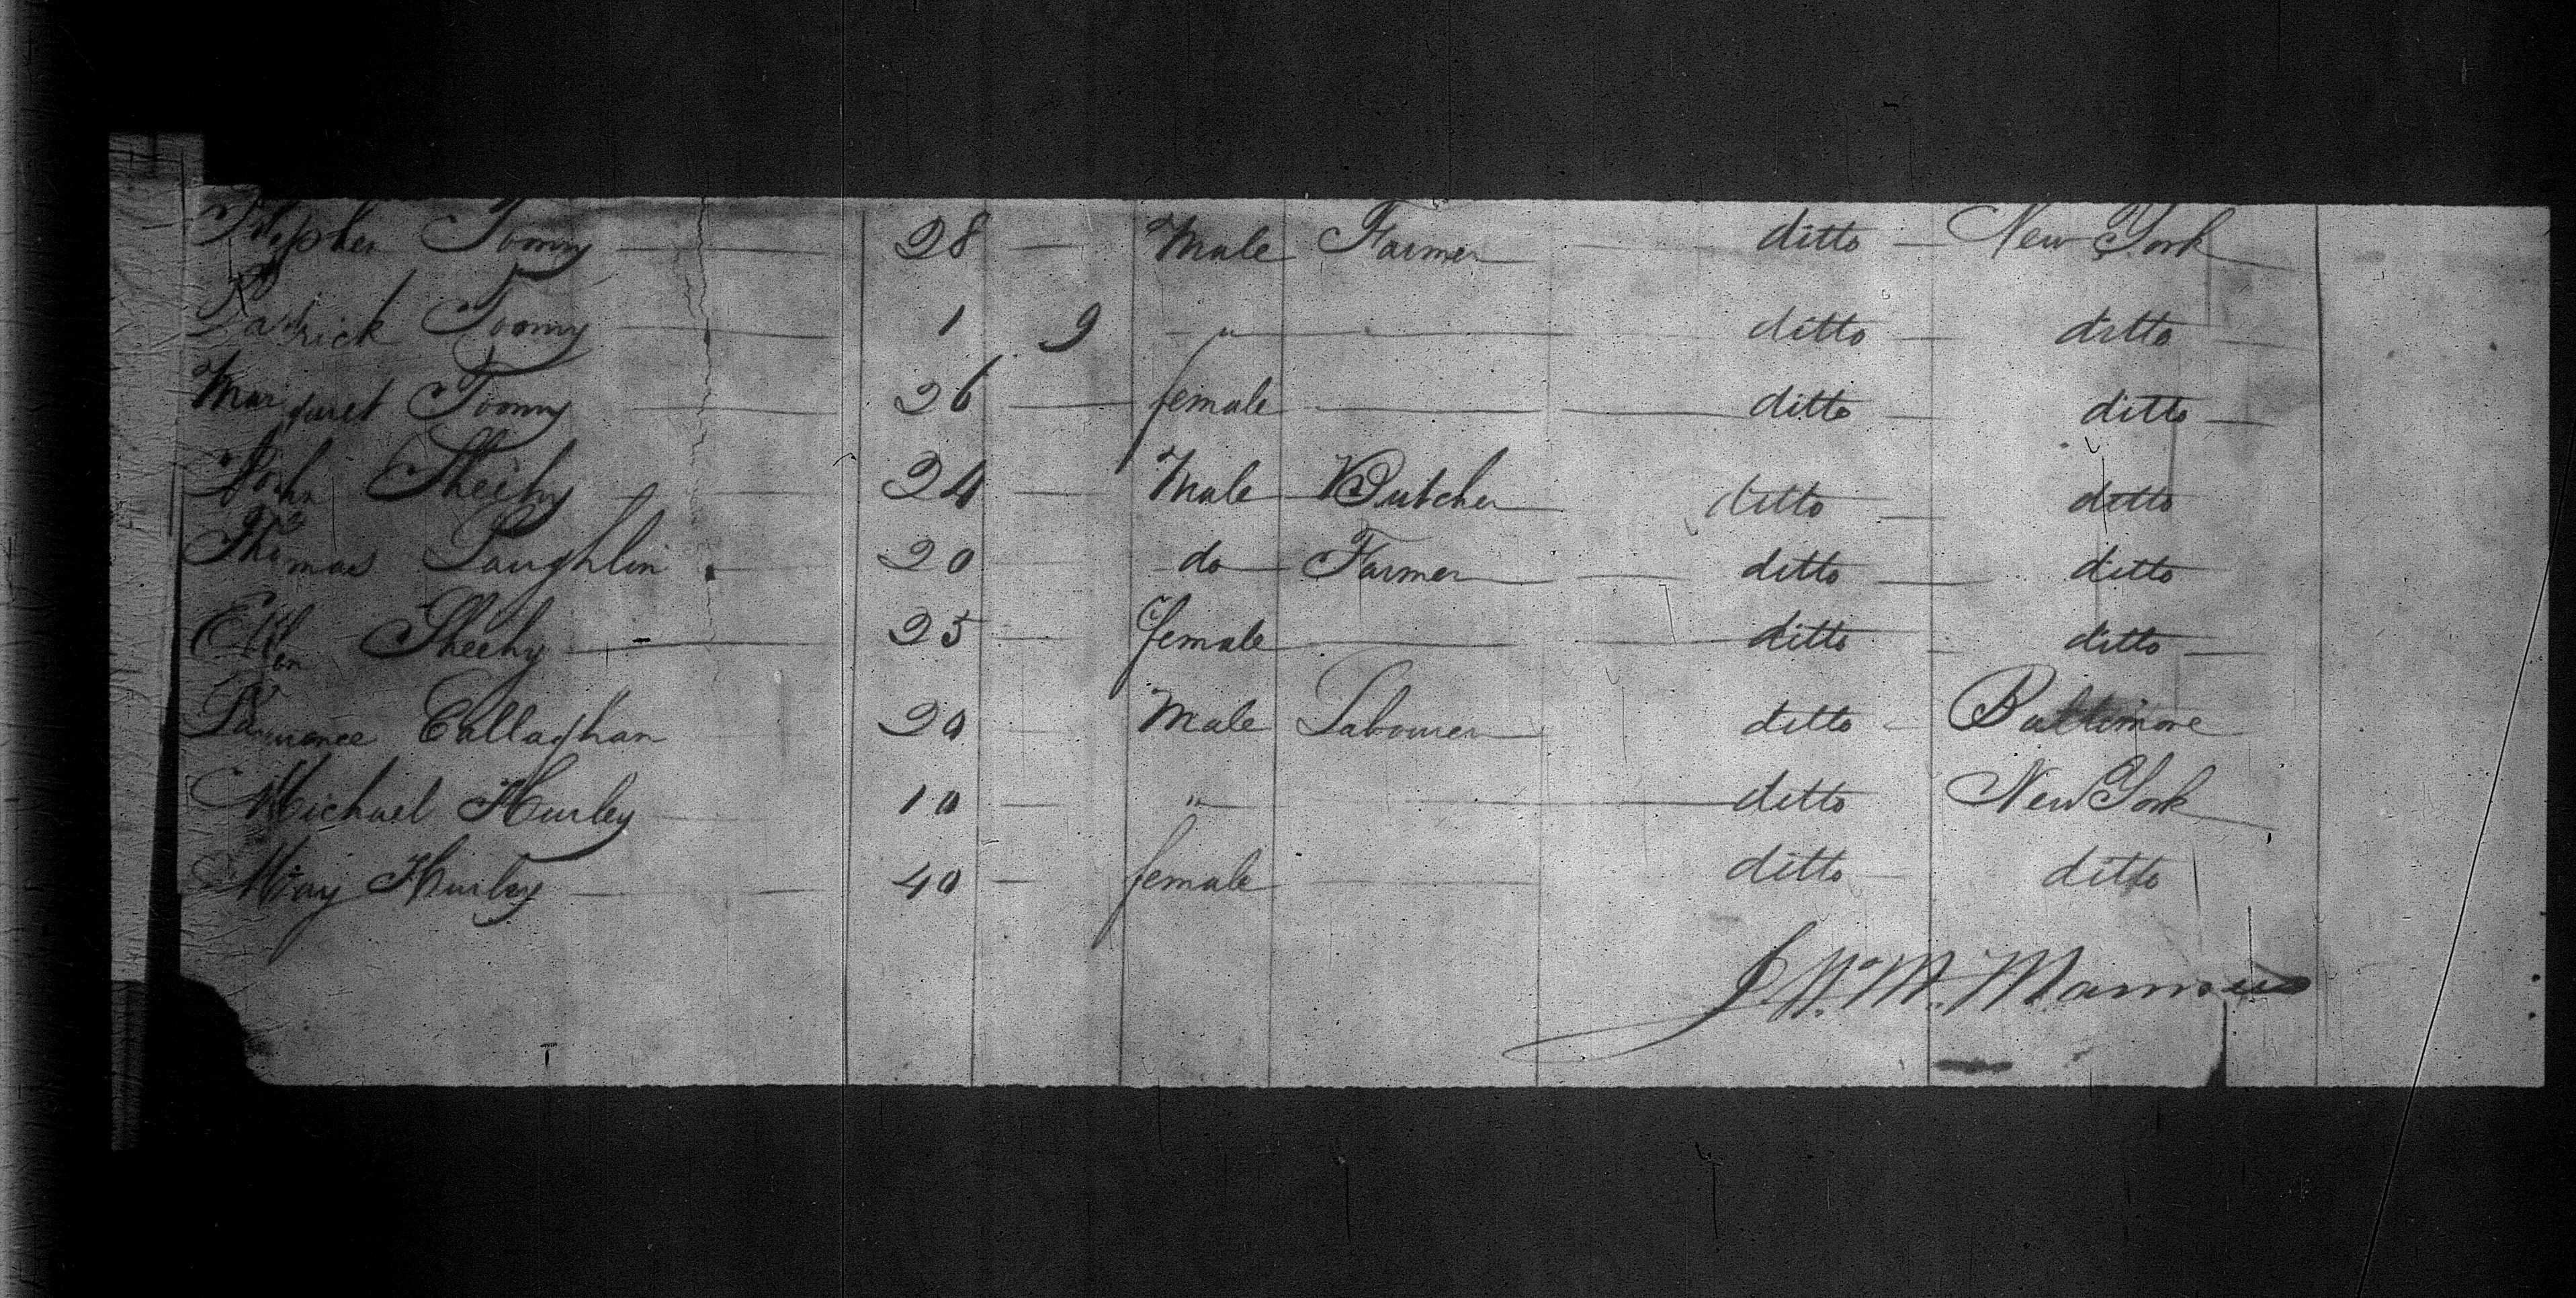 Stephen Tomny 28 Male Farmer ditto New York
Patrick Tomny 1 9 " ditto ditto
Margaret Tomny 26 female ditto ditto
John Sheehy 24 Male Butcher ditto ditto
Thomas Laughlin 20 do Farmer ditto ditto
Ellen Sheehy 25 female ditto ditto
Laurence Callaghan 20 Male Labourer ditto Baltimore
Michael Hurley 10 " ditto New York
May Hurley 40 female ditto ditto